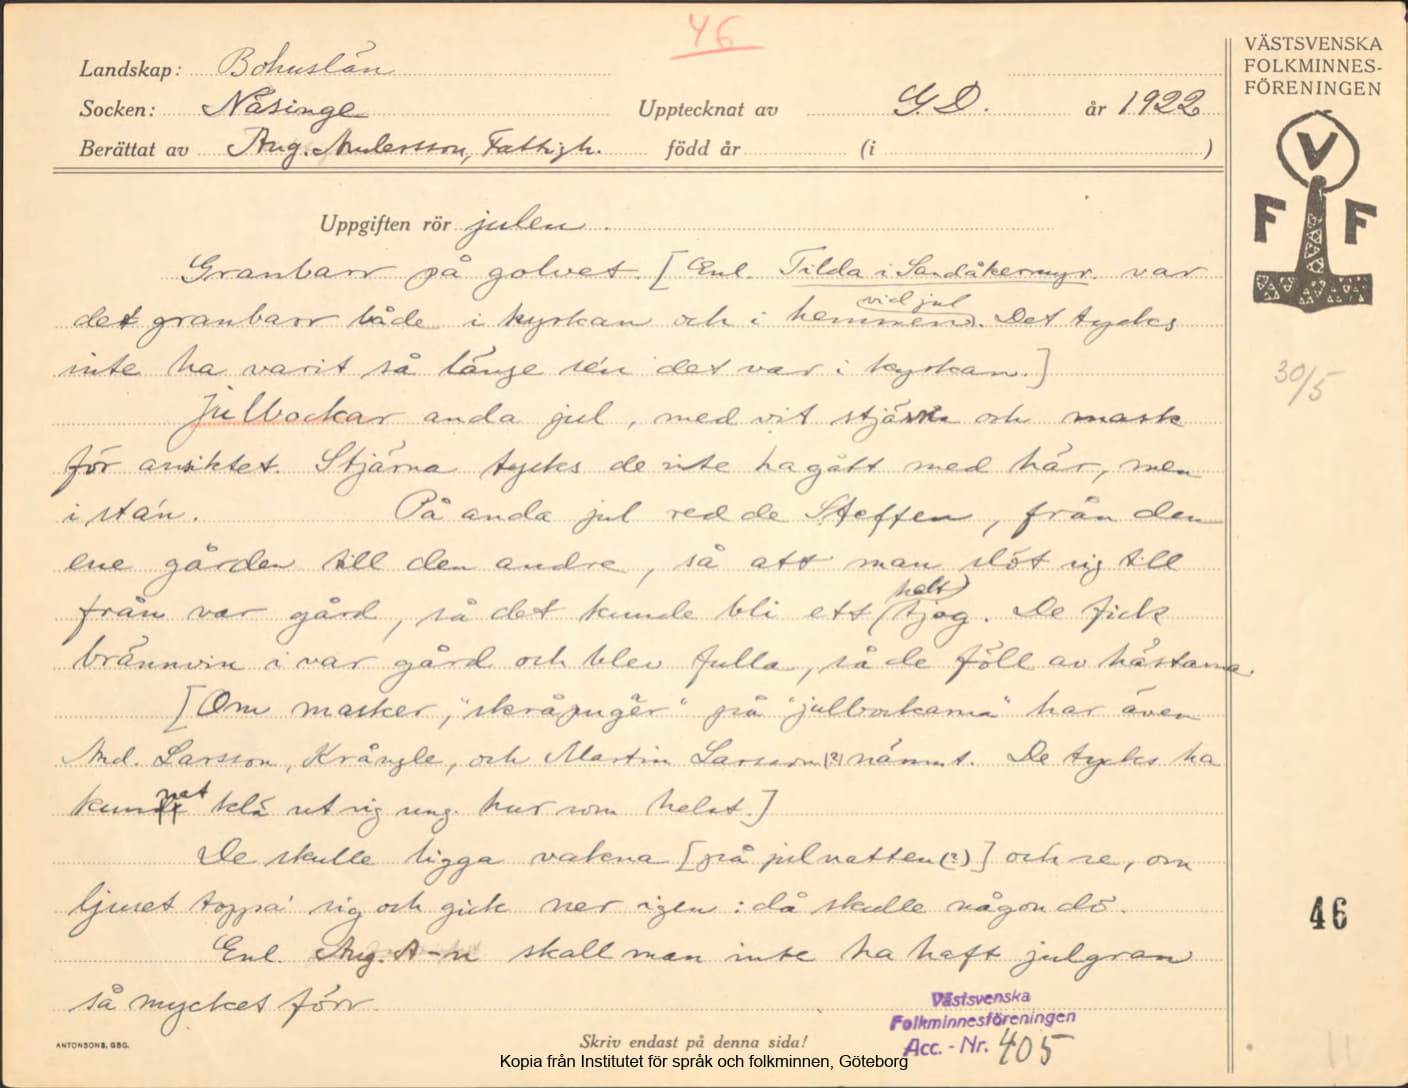 46
Landskap: Bohuslän
Socken: Näsinge Upptecknat av G.D. år 1922
Berättat av Aug. Andersson, Fattigh. född år (i )
VÄSTSVENSKA
FOLKMINNES-
FÖRENINGEN
V
F F
Uppgiften rör julen.
Granbarr på golvet. [Enl. Tilda i Sandåkermyr. var
det granbarr både i kyrkan och i hemmen vid jul. Det tycks
inte ha varit så länge se'n det var i kyrkan.]
Julbockar anda jul, med vit stjärna och mask
för ansiktet. Stjärna tycks de inte ha gått med här, men
i sta'n. På anda jul red de Steffen, från den
ene gården till den andre, så att man slöt sig till
från var gård, så det kunde bli ett (helt) tjog. De fick
brännvin i var gård och blev fulla, så de föll av hästarna.
[Om masker, "skråpuger" på "julbockarna" har även
And. Larsson, Krångle, och Martin Larsson (?) nämnt. De tycks ha
kunnat klä ut sig ung. hur som helst.]
De skulle ligga vakna [på julnatten (?)] och se, om
ljuset toppa' sig och gick ner igen: då skulle någon dö.
Enl. Aug. A-n skall man inte ha haft julgran
så mycket förr.
30/5
46
Västsvenska
Folkminnesföreningen
Acc. - Nr. 405
ANTONSONS, GBG.
Skriv endast på denna sida!
Kopia från Institutet för språk och folkminnen, Göteborg
11